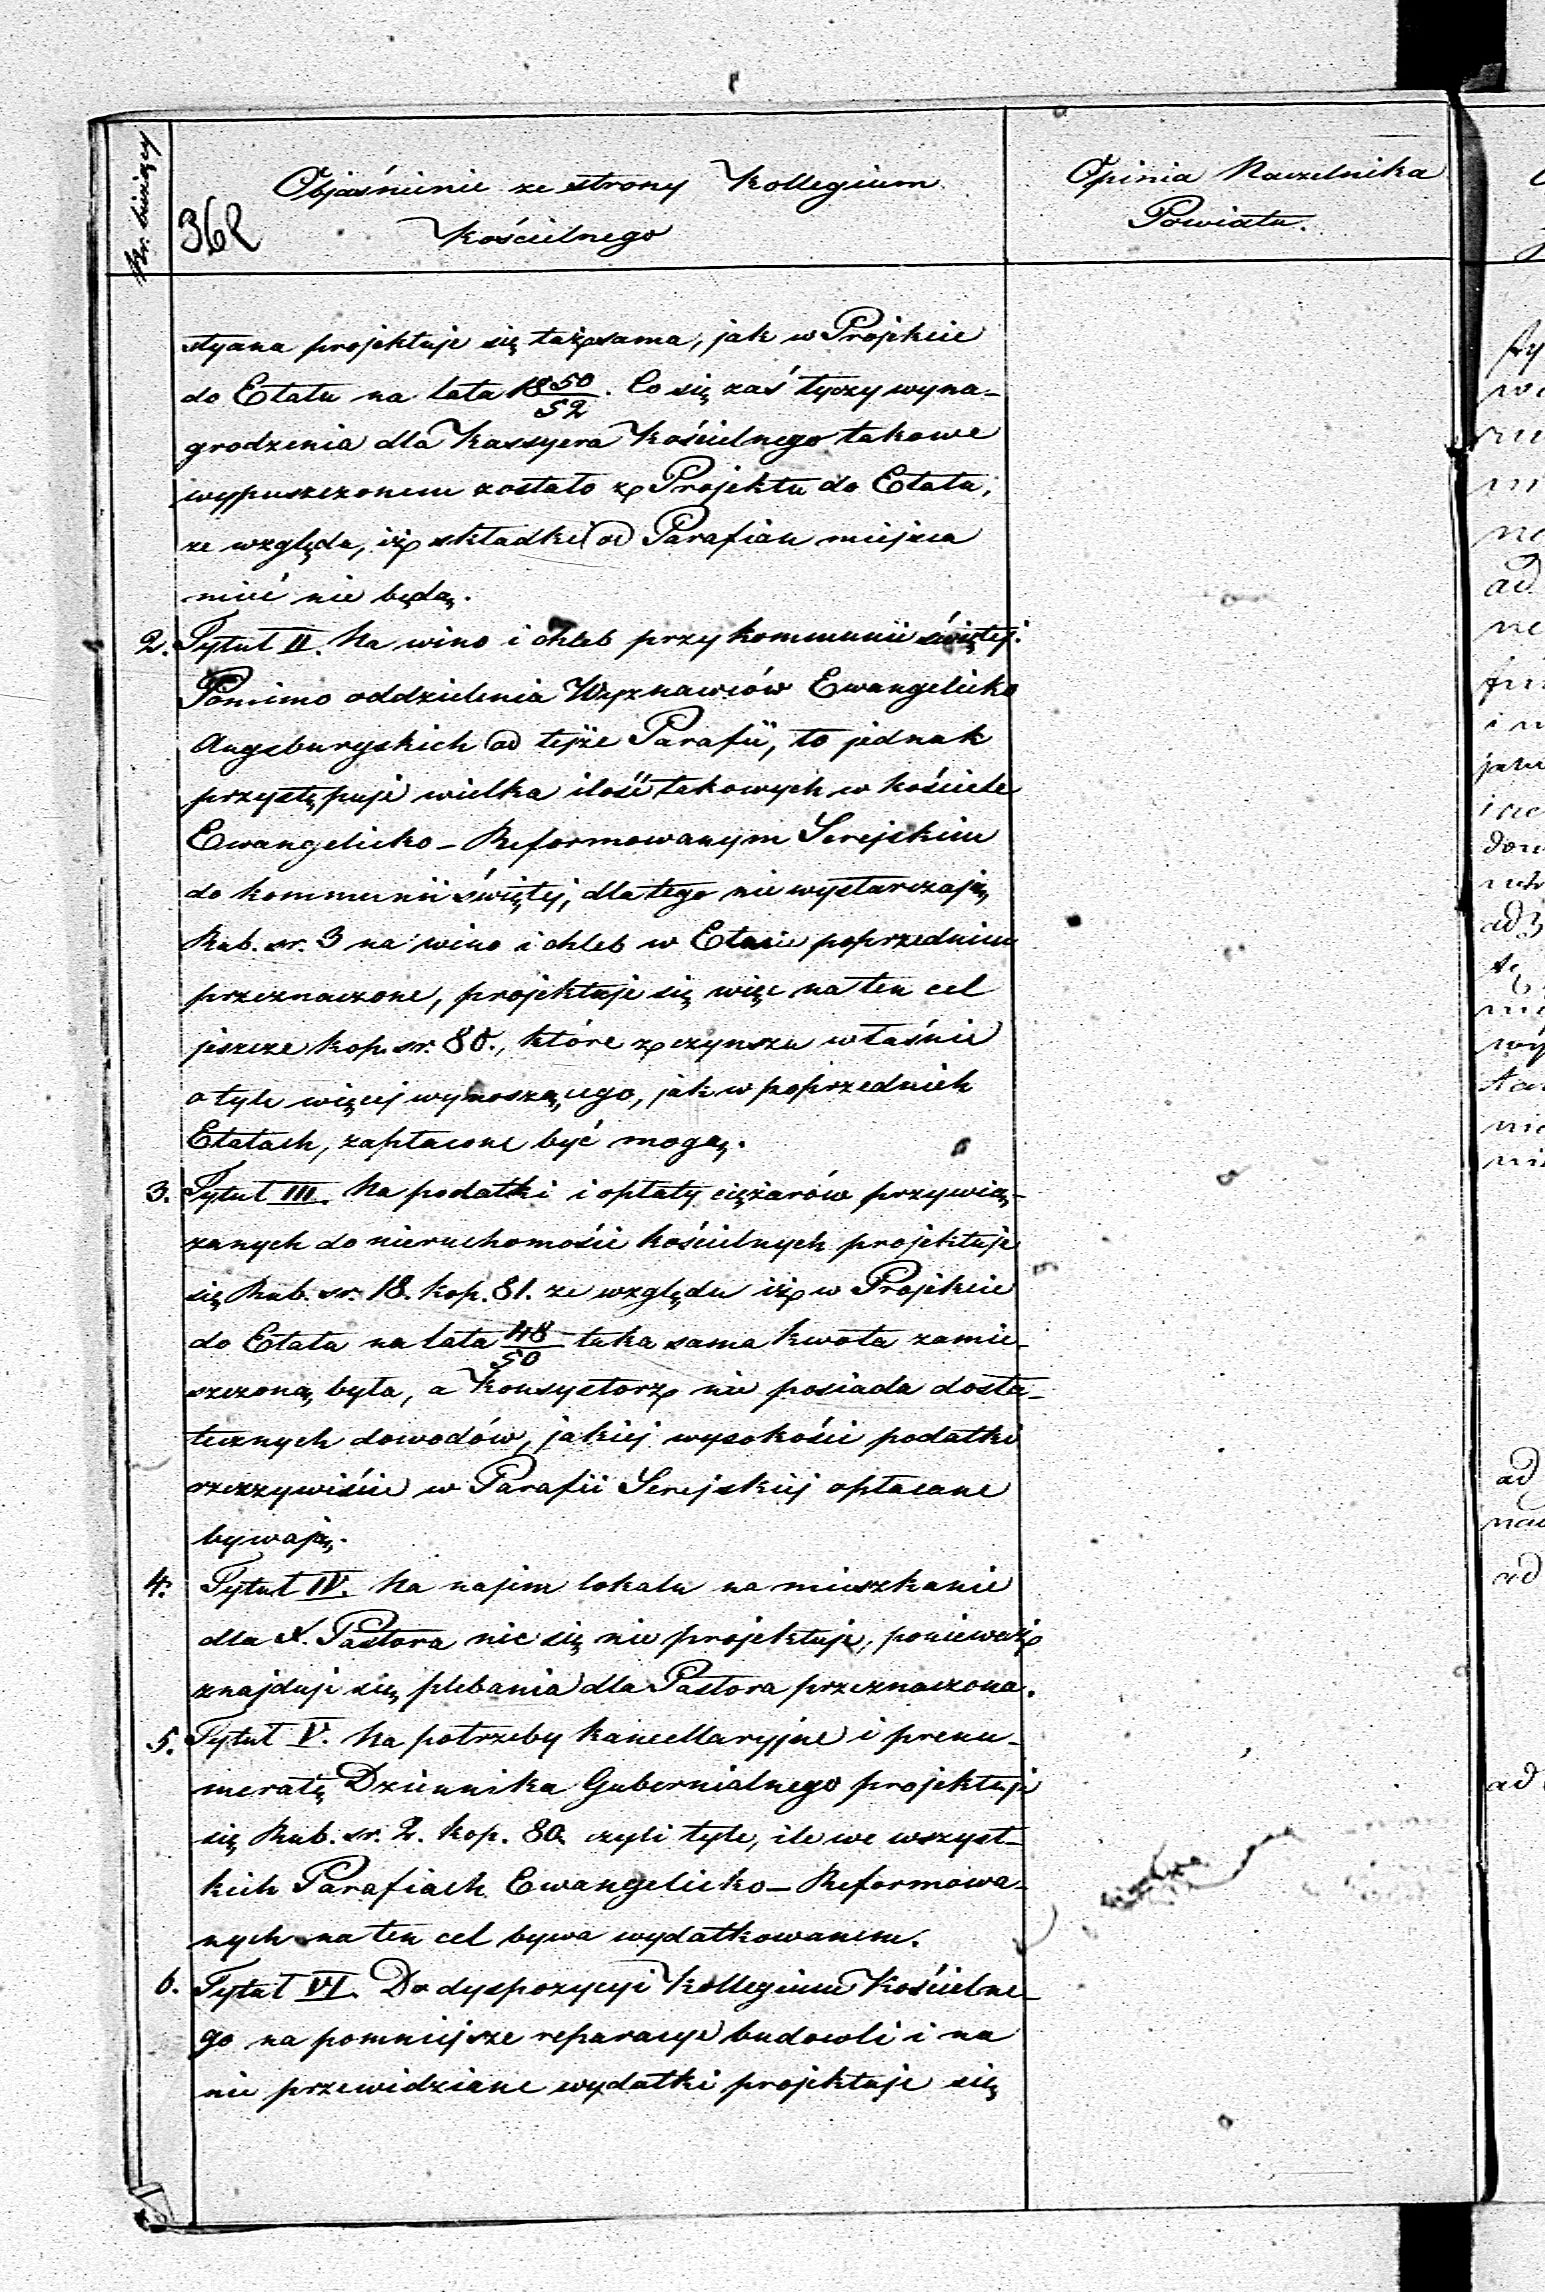 Nr. bieżący
362
Objaśnienie ze strony Kollegium
Kościelnego
Opinia Naczelnika
Powiatu.
styana projektuje się tażsama, jak w Projekcie
do Etatu na lata 1850/52. Co się zaś tyczy wyna-
grodzenia dla Kassyera Kościelnego takowe
wypuszczonem zostało z Projektu do Etatu,
ze względu, iż składki od Parafian miejsca
mieć nie będą.
2. Tytuł II. Na wino i chleb przy kommunii świętej.
Pomimo oddzielenia Wyznawców Ewangelicko
Augsburgskich od tejże Parafii, to jednak
przystępuje wielka ilość takowych w kościele
Ewangelicko-Reformowanym Serejskim
do kommunii świętej, dla tego nie wystarczają
Rub. sr. 3 na wino i chleb w Etacie poprzednim
przeznaczone, projektuje się więc na ten cel
jeszcze kop. sr. 80., które z czynszu właśnie
o tyle więcej wynoszącego, jak w poprzednich
Etatach, zapłacone być mogą.
3. Tytuł III. Na podatki i opłaty ciężarów przywią-
zanych do nieruchomości kościelnych projektuje
się Rub. sr. 18. kop. 81. ze względu iż w Projekcie
do Etatu na lata 48/50 taka sama kwota zamie-
szczoną była, a Konsystorz nie posiada dosta-
tecznych dowodów, jakiej wysokości podatki
rzeczywiście w Parafii Serejskiej opłacane
bywają.
4. Tytuł IV. Na najem lokalu na mieszkanie
dla X. Pastora nic się nie projektuje, ponieważ
znajduje się plebania dla Pastora przeznaczona.
5. Tytuł V. Na potrzeby kancellaryjne i prenu-
meratę Dziennika Gubernialnego projektuje
się Rub. sr. 2. kop. 80. czyli tyle, ile we wszyst-
kich Parafiach Ewangelicko-Reformowa-
nych na ten cel bywa wydatkowanem.
6. Tytuł VI. Do dyspozycyi Kollegium Kościelne-
go na pomniejsze reparacye budowli i na
nie przewidziane wydatki projektuje się